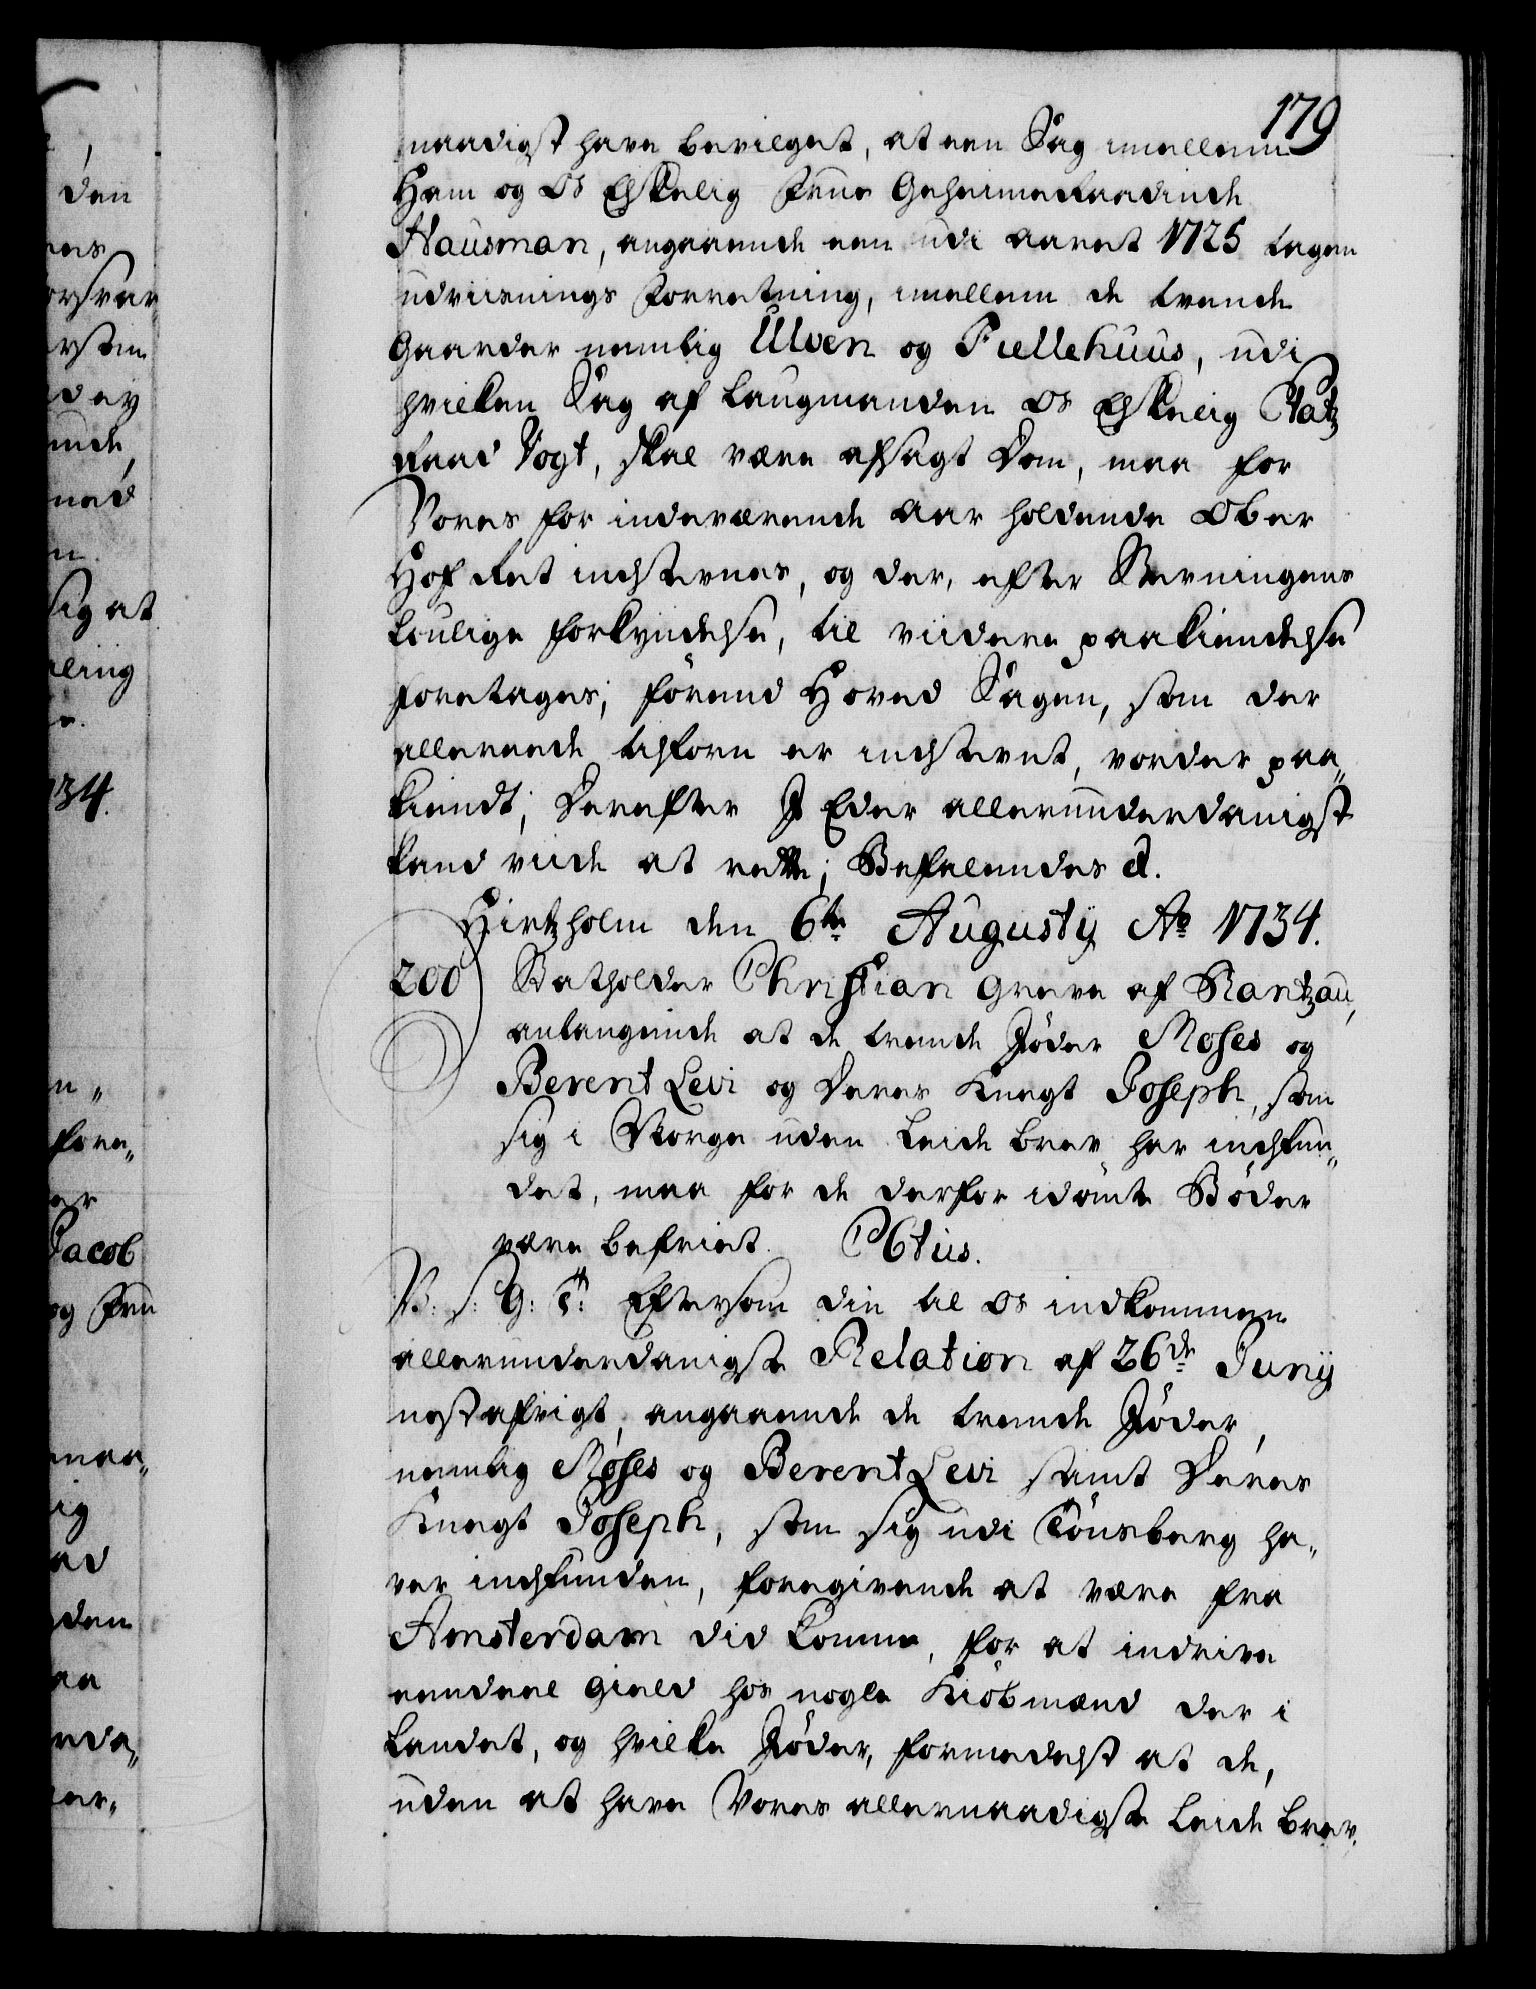 179
naadigst have bevilget, at een Sag imellem
Ham og Os Elskelig Frue Geheimeraadinde
Hausman, angaaende een udi aaret 1725 tagen
udviisnings Forretning, imellem de tvende
Gaarder nemlig Ulven og Fiellehuus, udi
hvilken Sag af Laugmanden Os Elskelig Etatz
Raad Vogt, skal være afsagt Dom, maa for
Vores for indeværende Aar holdende Ober
Hof Ret indstevnes, og der, efter Stevningens
Lovlige forkyndelse, til viidere paakiendelse
foretages, förend Hoved Sagen, som der
allereede tilforn er indstevnt, vorder paa„
kiendt, Derefter I Eder allerunderdanigst
kand viide at rette; Befalendes d.
Hirtzholm den 6te Augustij Ao 1734.
200) Statholder Christian Greve af Rantzau,
anlangende at de tvende Jøder Moses og
Berent Levi og Deres Knegt Joseph, som
sig i Norge uden Leide brev har indfun„
det, maa for de derfor idömte Bøder
være befriet. Ctius.
V: S: G: T: Eftersom din til Os indkommen
allerunderdanigste Relation af 26de Junij
nestafvigt, angaaende de tvende Jøder,
nemlig Moses og Berent Levi samt Deres
Knegt Joseph, som sig udi Tönsberg ha„
ver indfunden, foregivende at være fra
Amsterdam did komne, for at indrive
eendeel Gield hos nogle Kiöbmænd der i
Landet, og hvilke Jøder, formedelst at de,
uden at have Vores allernaadigste Leide brev,
den
34.
sig at
Jacob
og Frue